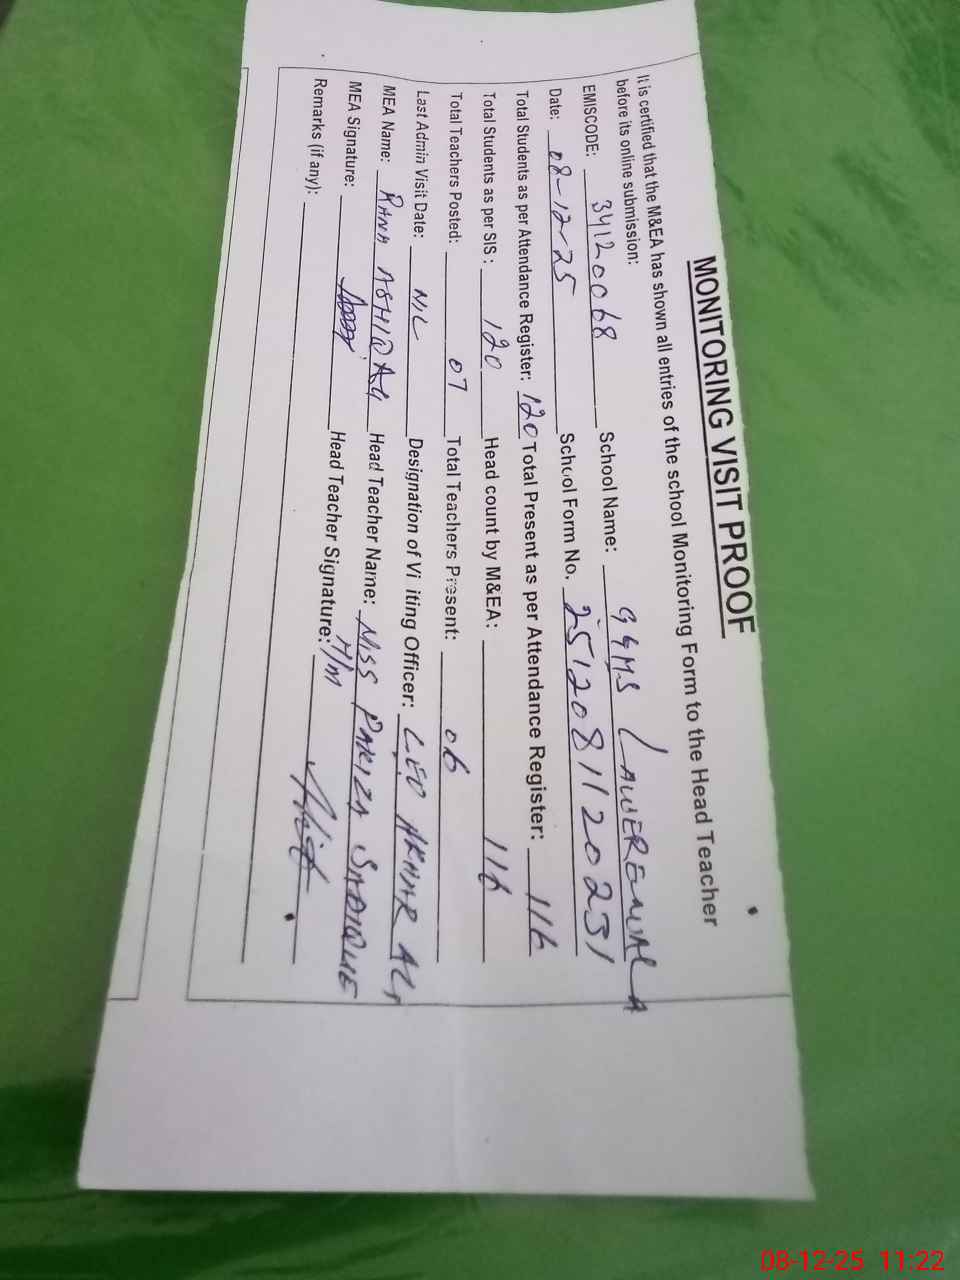 MONITORING VISIT PROOF
It is certified that the M&EA has shown all entries of the school Monitoring Form to the Head Teacher
before its online submission:
EMISCODE: 34120068 School Name: GGMS LAWEREWALA
Date: 08-12-25 School Form No. 2512081120231
Total Students as per Attendance Register: 120 Total Present as per Attendance Register: 116
Total Students as per SIS: 120 Head count by M&EA: 116
Total Teachers Posted: 07 Total Teachers Present: 06
Last Admin Visit Date: NIL Designation of Vi iting Officer: AKHAR ALI
MEA Name: RANA ASHIQ Head Teacher Name: MISS PARIZA SADIQUE
MEA Signature: Head Teacher Signature: H/M
Remarks (if any):
08-12-25 11:22